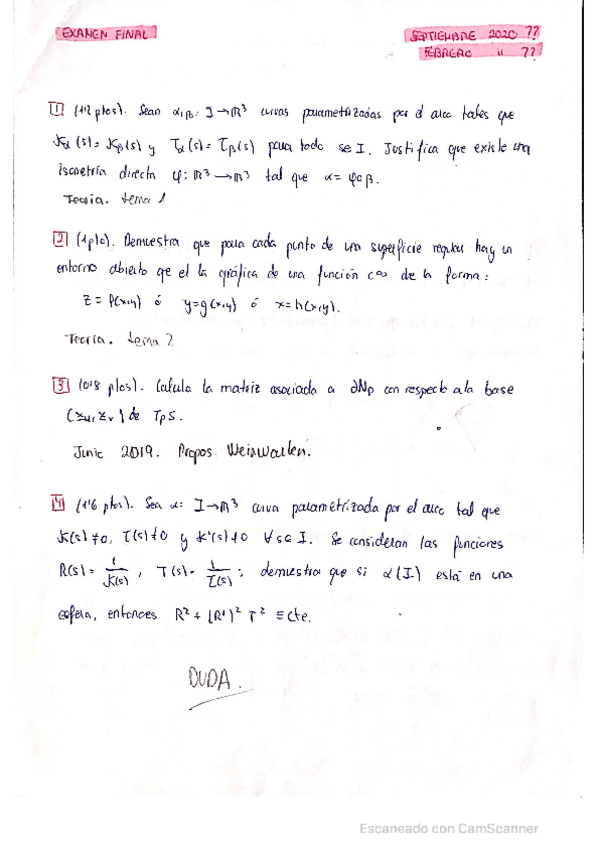 EXAMEN FINAL
SEPTIEMBRE 2020 ??
FEBRERO " ??
1 (1'2 ptos). Sean α, β: I→ℝ³ curvas parametrizadas por el arco tales que
Kα(s) = Kβ(s) y τα(s) = τβ(s) para todo s∈I. Justifica que existe una
isometría directa φ: ℝ³→ℝ³ tal que α = φ∘β.
Teoría. tema 1
2 (1pto). Demuestra que para cada punto de una superficie regular hay un
entorno abierto qe el la gráfica de una función C∞ de la forma:
z = f(x,y) ó y=g(x,y) ó x=h(x,y).
Teoría. tema 2
3 (0'8 ptos). Calcula la matriz asociada a dNp con respecto a la base
(xu, xv) de TpS.
Junio 2019. Propos Weingarten.
4 (1'6 ptos). Sea α: I→ℝ³ curva parametrizada por el arco tal que
K(s)≠0, τ(s)≠0 y K'(s)≠0 ∀s∈I. Se consideran las funciones
R(s) = 1/K(s), T(s) = 1/τ(s); demuestra que si α(I) está en una
esfera, entonces R² + (R')² T² ≡ cte.
DUDA.
Escaneado con CamScanner